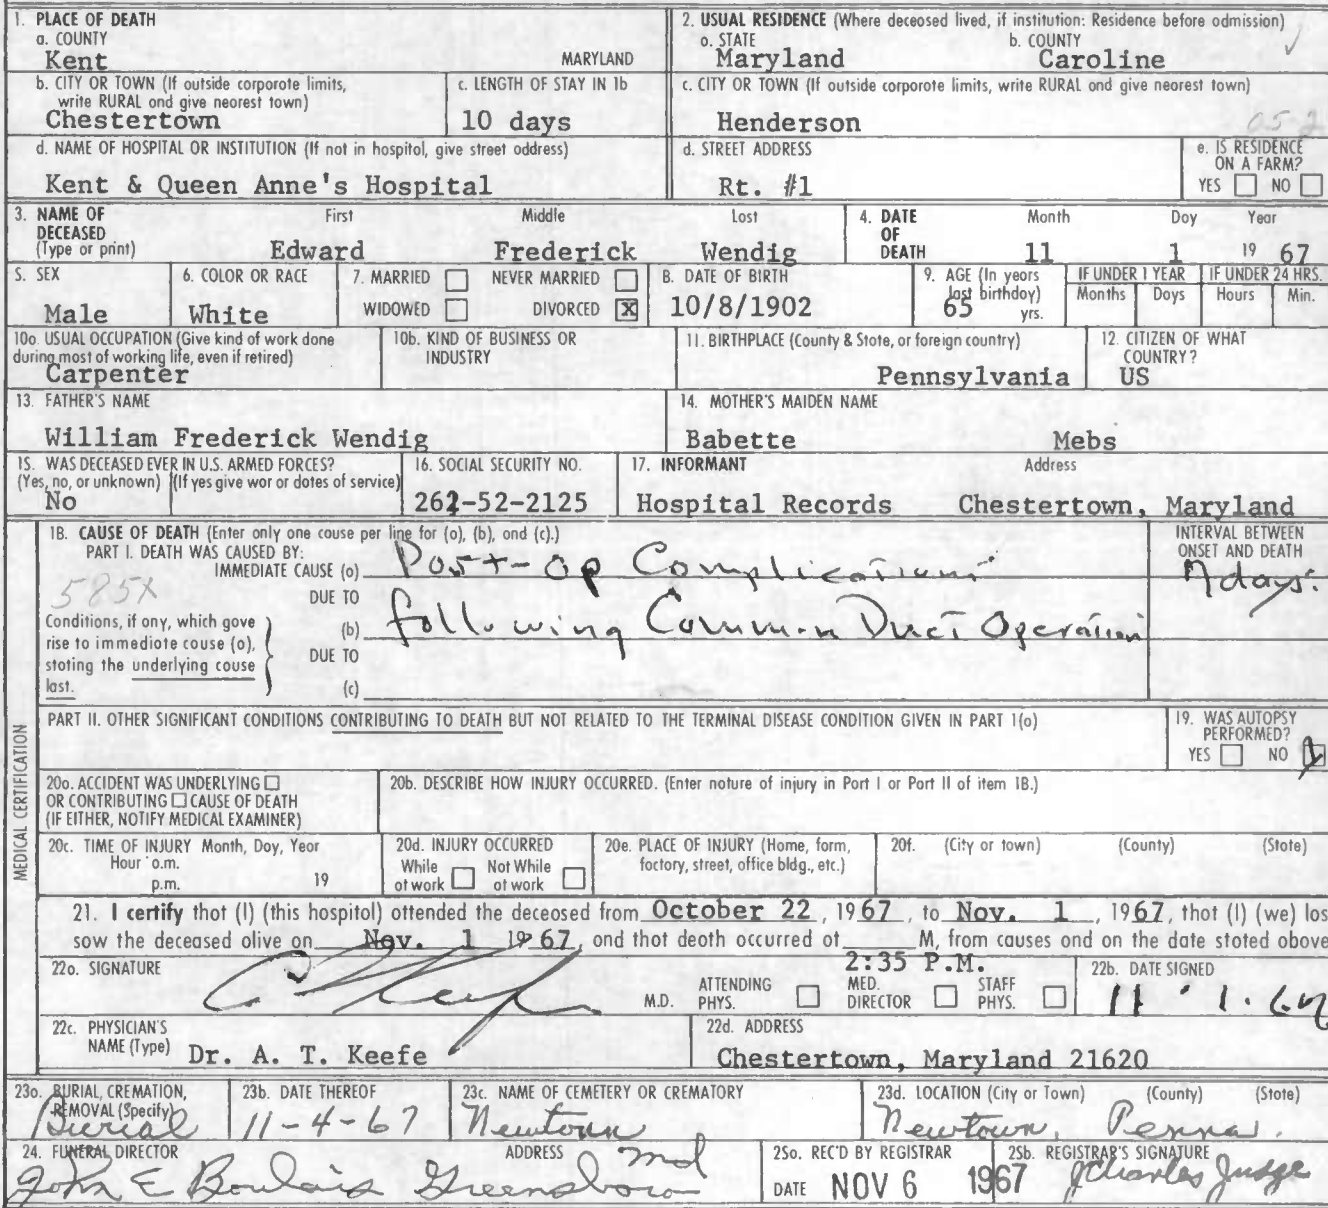 1. PLACE OF DEATH
a. COUNTY
Kent MARYLAND
2. USUAL RESIDENCE (Where deceased lived, if institution: Residence before admission)
a. STATE b. COUNTY
Maryland Caroline
b. CITY OR TOWN (If outside corporate limits,
write RURAL and give nearest town)
Chestertown
c. LENGTH OF STAY IN 1b
10 days
c. CITY OR TOWN (If outside corporate limits, write RURAL and give nearest town)
Henderson
05-2
d. NAME OF HOSPITAL OR INSTITUTION (If not in hospital, give street address)
Kent & Queen Anne's Hospital
d. STREET ADDRESS
Rt. #1
e. IS RESIDENCE
ON A FARM?
YES NO
3. NAME OF
DECEASED
(Type or print)
First Middle Last
Edward Frederick Wendig
4. DATE
OF
DEATH
Month Day Year
11 1 19 67
5. SEX
Male
6. COLOR OR RACE
White
7. MARRIED NEVER MARRIED
WIDOWED DIVORCED X
8. DATE OF BIRTH
10/8/1902
9. AGE (In years
last birthday)
65 yrs.
IF UNDER 1 YEAR
Months Days
IF UNDER 24 HRS.
Hours Min.
10a. USUAL OCCUPATION (Give kind of work done
during most of working life, even if retired)
Carpenter
10b. KIND OF BUSINESS OR
INDUSTRY
11. BIRTHPLACE (County & State, or foreign country)
Pennsylvania
12. CITIZEN OF WHAT
COUNTRY?
US
13. FATHER'S NAME
William Frederick Wendig
14. MOTHER'S MAIDEN NAME
Babette Mebs
15. WAS DECEASED EVER IN U.S. ARMED FORCES?
(Yes, no, or unknown) (If yes give war or dates of service)
No
16. SOCIAL SECURITY NO.
262-52-2125
17. INFORMANT Address
Hospital Records Chestertown, Maryland
MEDICAL CERTIFICATION
18. CAUSE OF DEATH (Enter only one cause per line for (a), (b), and (c).)
PART I. DEATH WAS CAUSED BY:
IMMEDIATE CAUSE (a) Post-op Complications
INTERVAL BETWEEN
ONSET AND DEATH
7 days.
585X
DUE TO
Conditions, if any, which gave
rise to immediate cause (a),
stating the underlying cause
last.
(b) following Common Duct Operation
DUE TO
(c)
PART II. OTHER SIGNIFICANT CONDITIONS CONTRIBUTING TO DEATH BUT NOT RELATED TO THE TERMINAL DISEASE CONDITION GIVEN IN PART 1(a)
19. WAS AUTOPSY
PERFORMED?
YES NO X
20a. ACCIDENT WAS UNDERLYING
OR CONTRIBUTING CAUSE OF DEATH
(IF EITHER, NOTIFY MEDICAL EXAMINER)
20b. DESCRIBE HOW INJURY OCCURRED. (Enter nature of injury in Part I or Part II of item 18.)
20c. TIME OF INJURY Month, Day, Year
Hour a.m.
p.m. 19
20d. INJURY OCCURRED
While Not While
at work at work
20e. PLACE OF INJURY (Home, farm,
factory, street, office bldg., etc.)
20f. (City or town) (County) (State)
21. I certify that (I) (this hospital) attended the deceased from October 22, 1967, to Nov. 1, 1967, that (I) (we) las
saw the deceased alive on Nov. 1 1967, and that death occurred at M, from causes and on the date stated above
2:35 P.M.
22a. SIGNATURE
M.D.
ATTENDING
PHYS.
MED.
DIRECTOR
STAFF
PHYS.
22b. DATE SIGNED
11 . 1. 67
22c. PHYSICIAN'S
NAME (Type) Dr. A. T. Keefe
22d. ADDRESS
Chestertown, Maryland 21620
23a. BURIAL, CREMATION,
REMOVAL (Specify)
Burial
23b. DATE THEREOF
11-4-67
23c. NAME OF CEMETERY OR CREMATORY
Newtown
23d. LOCATION (City or Town) (County) (State)
Newtown, Penna.
24. FUNERAL DIRECTOR ADDRESS
John E Boulais Greensboro Md
25a. REC'D BY REGISTRAR
DATE NOV 6 1967
25b. REGISTRAR'S SIGNATURE
J Charles Judge